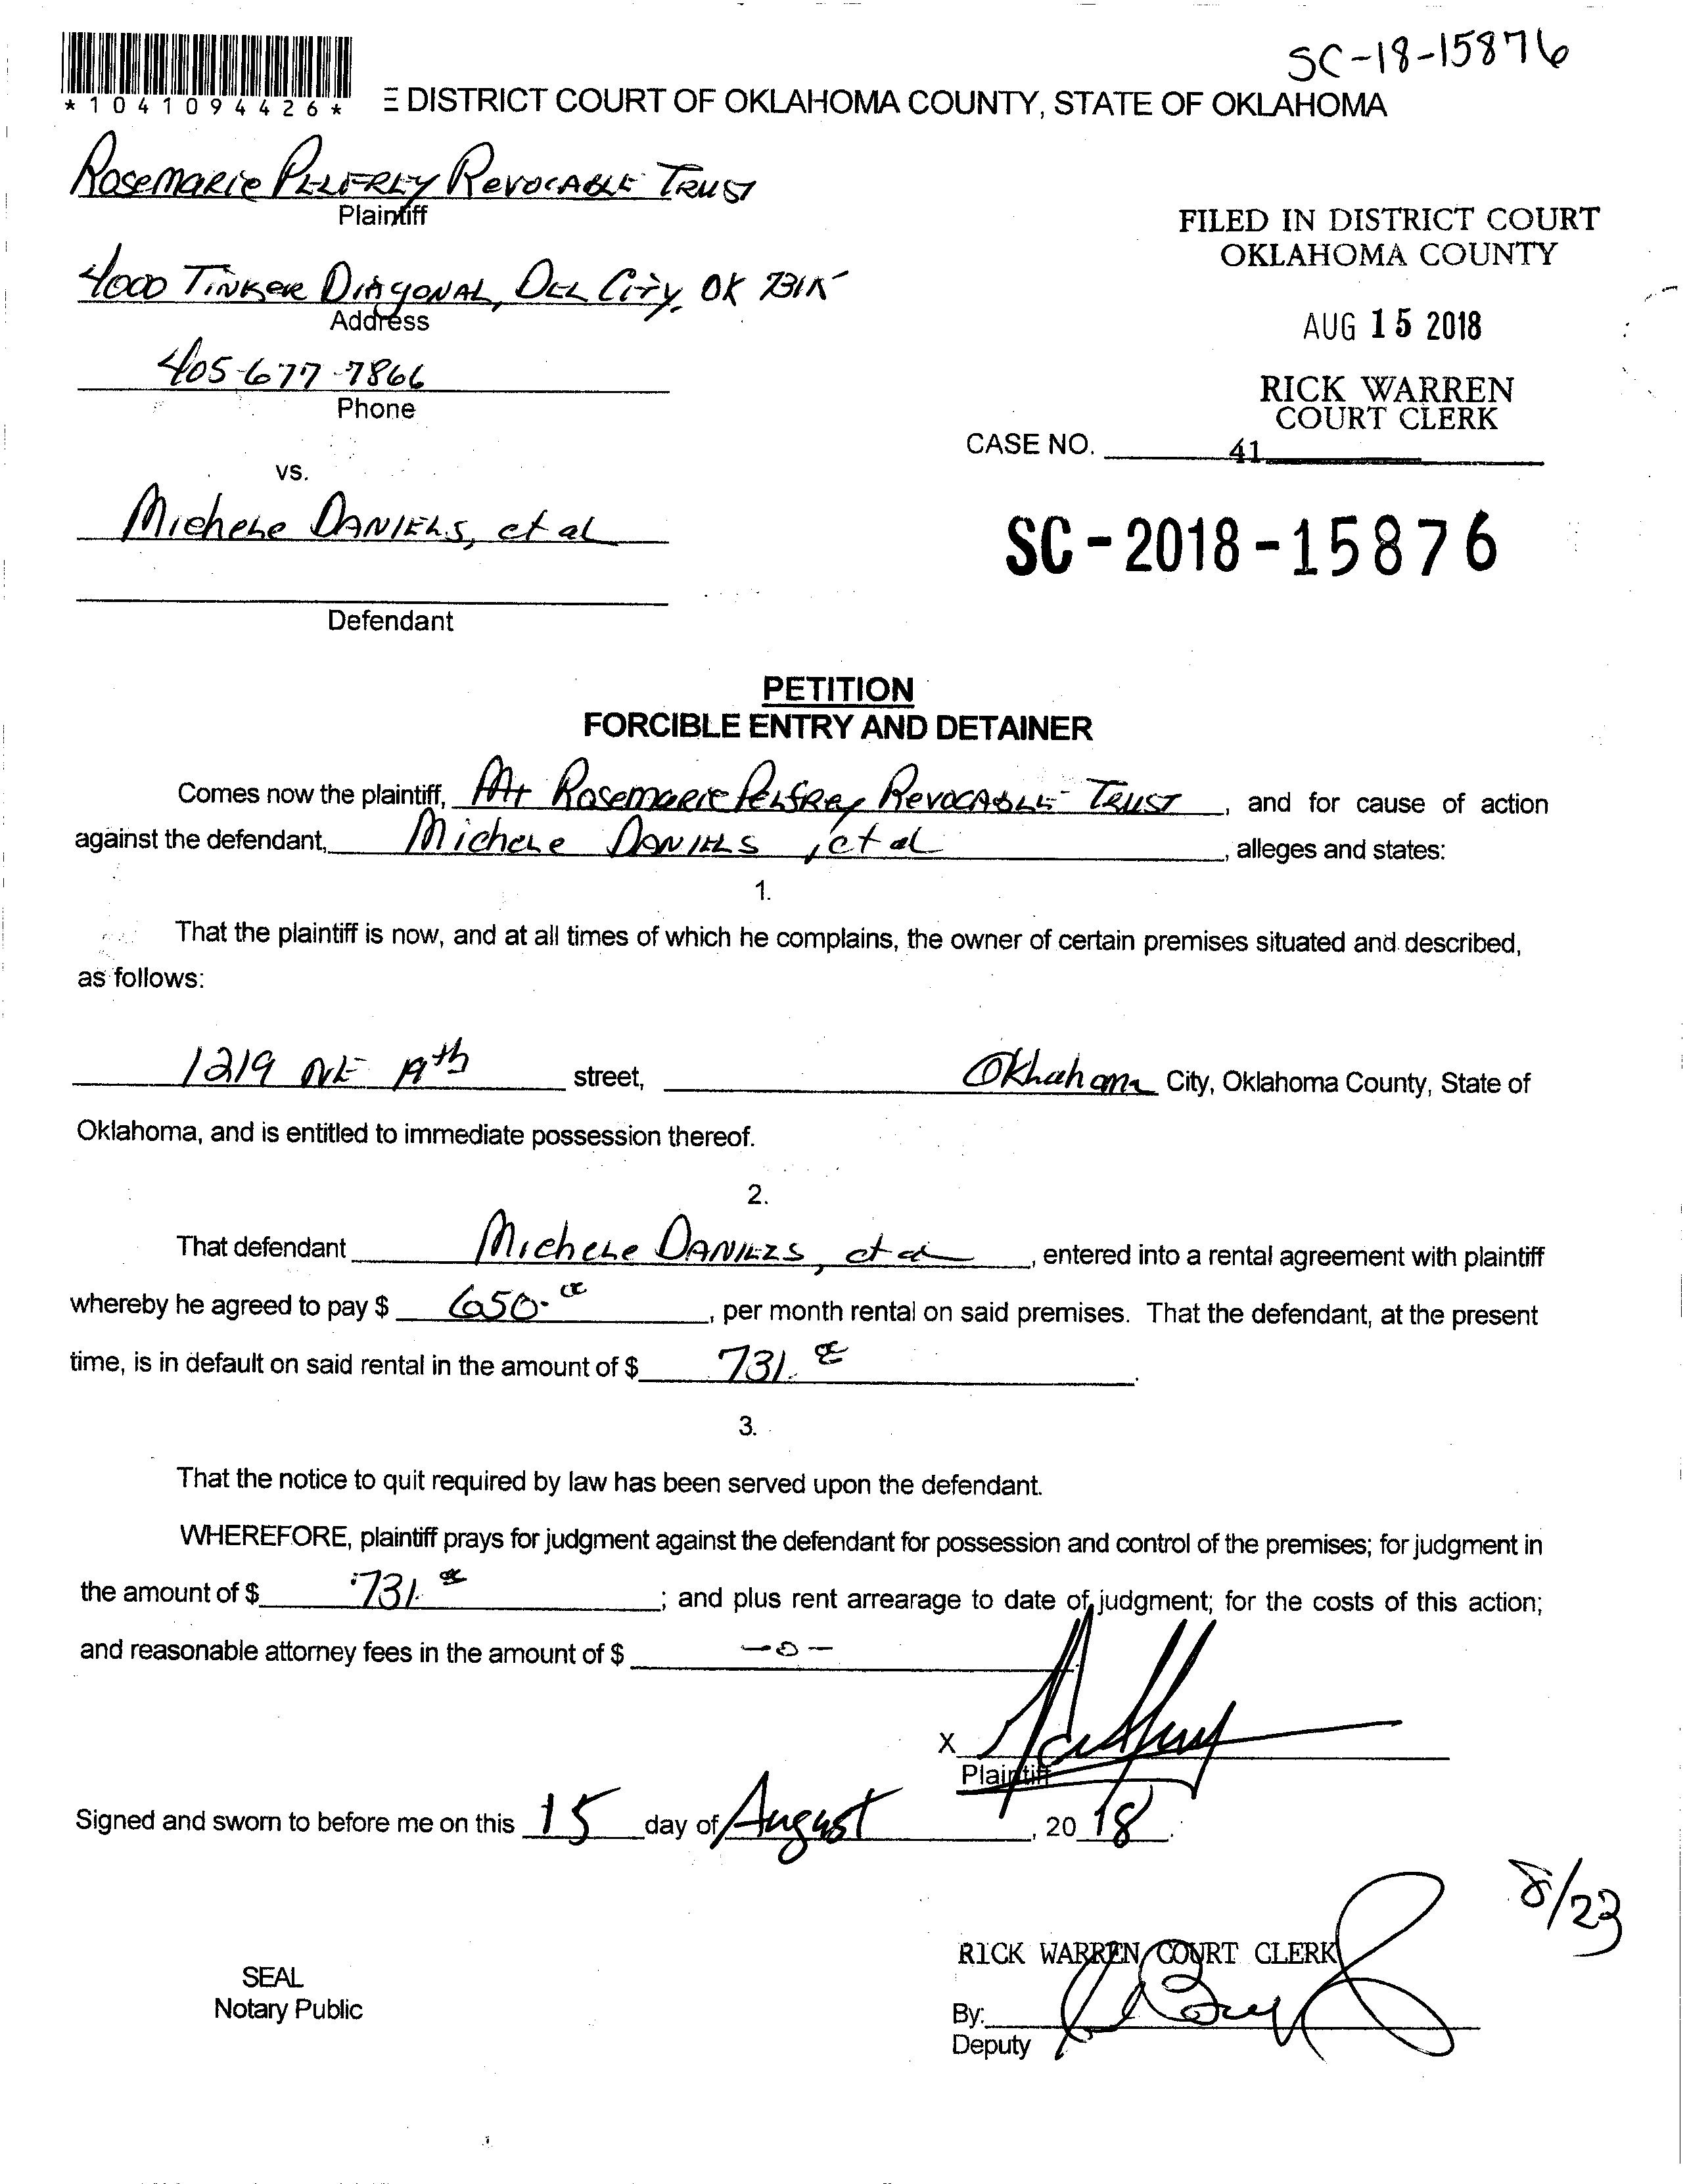 SC-18-15876
*1041094426*
E DISTRICT COURT OF OKLAHOMA COUNTY, STATE OF OKLAHOMA
Rosemarie Pelfrey Revocable Trust
Plaintiff
4000 Tinker Diagonal, Del City, OK
Address
405-677-7866
Phone
vs.
Michele Daniels, et al
Defendant
FILED IN DISTRICT COURT
OKLAHOMA COUNTY
AUG 15 2018
RICK WARREN
COURT CLERK
CASE NO. 41
SC-2018-15876
PETITION
FORCIBLE ENTRY AND DETAINER
Comes now the plaintiff, Rosemarie Pelfrey Revocable Trust, and for cause of action
against the defendant, Michele Daniels, et al, alleges and states:
1.
That the plaintiff is now, and at all times of which he complains, the owner of certain premises situated and described,
as follows:
1219 NE 19th street, Oklahoma City, Oklahoma County, State of
Oklahoma, and is entitled to immediate possession thereof.
2.
That defendant Michele Daniels, et al, entered into a rental agreement with plaintiff
whereby he agreed to pay $ 650.00, per month rental on said premises. That the defendant, at the present
time, is in default on said rental in the amount of $ 731.00.
3.
That the notice to quit required by law has been served upon the defendant.
WHEREFORE, plaintiff prays for judgment against the defendant for possession and control of the premises; for judgment in
the amount of $ 731.00; and plus rent arrearage to date of judgment; for the costs of this action;
and reasonable attorney fees in the amount of $ -0-
X
Plaintiff
Signed and sworn to before me on this 15 day of August, 2018.
8/23
RICK WARREN COURT CLERK
SEAL
Notary Public
By:
Deputy